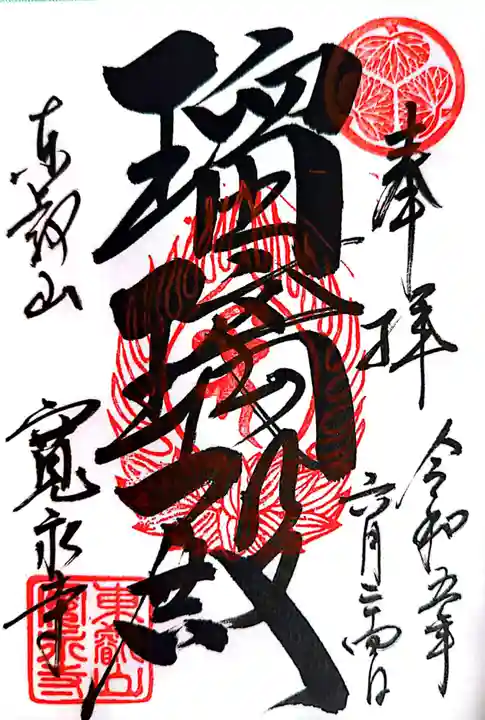 奉拝
令和五年
六月二十四日
瑠璃殿
東叡山
寛永寺
東叡山
寛永寺